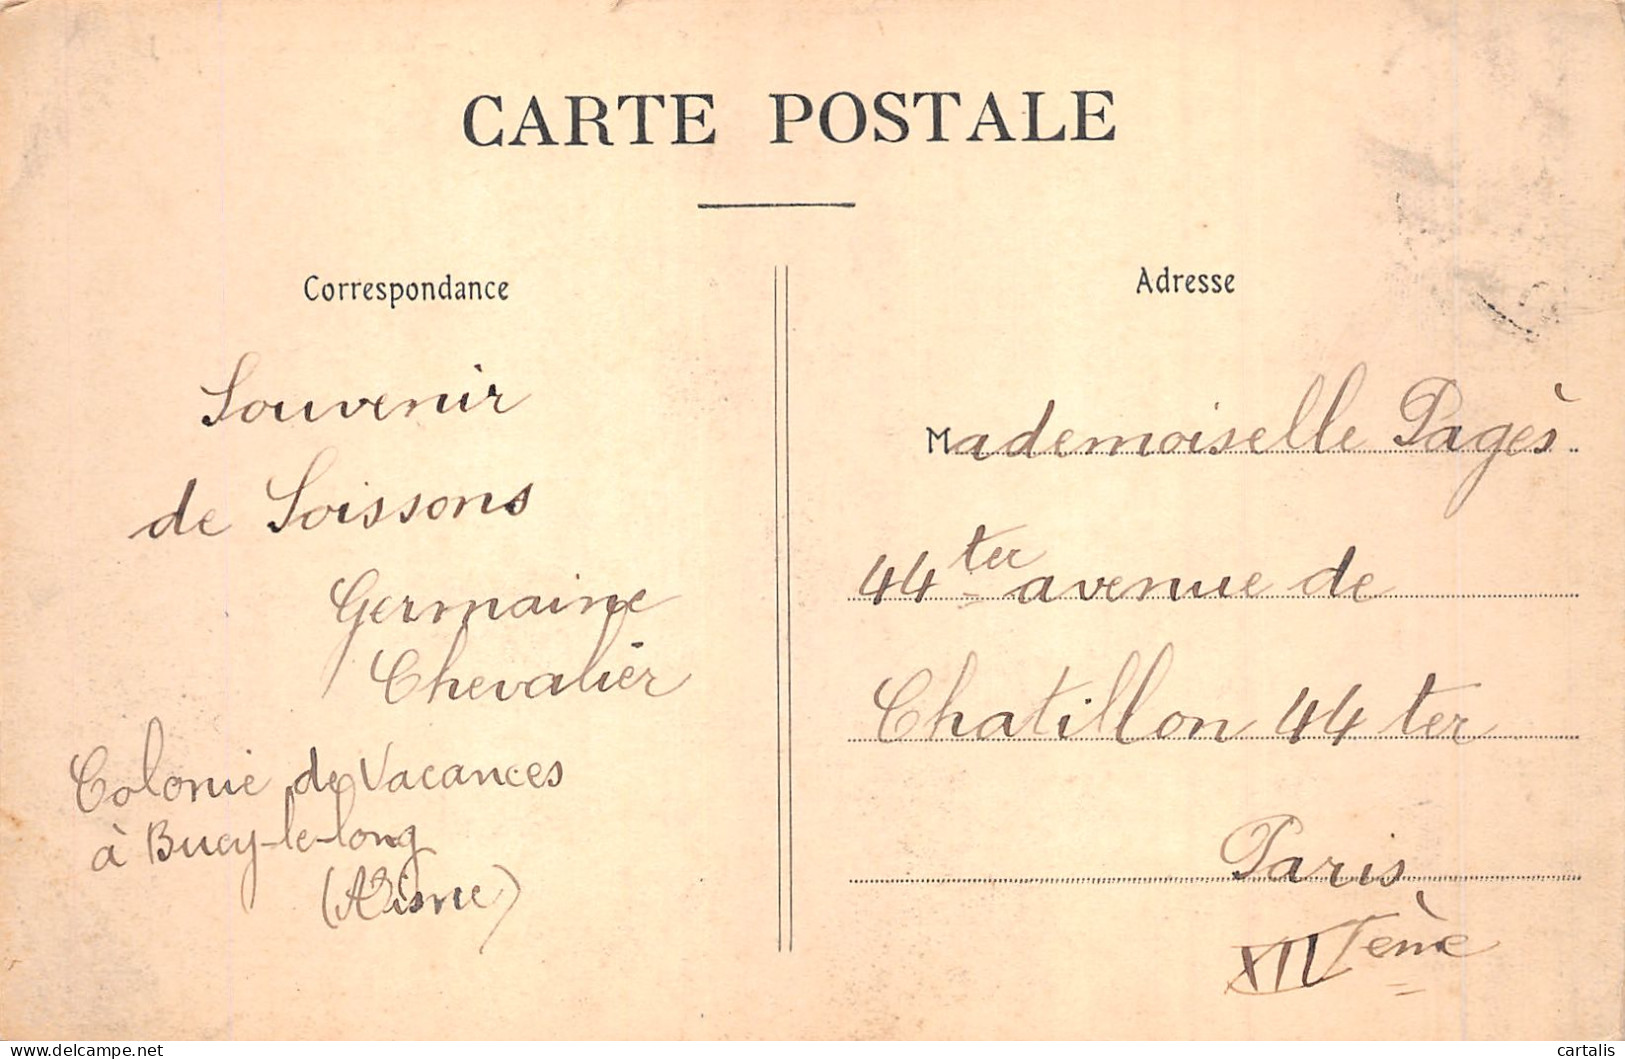 CARTE POSTALE
Correspondance
Souvenir
de Soissons
Germaine
Chevalier
Colonie de Vacances
à Bucy-le-long
(Aisne)
Adresse
Mademoiselle Pagès
44 ter avenue de
Chatillon 44 ter
Paris
XIVème
www.delcampe.net
cartalis